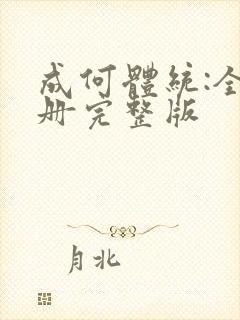 成何體統:全
册完整版
月北